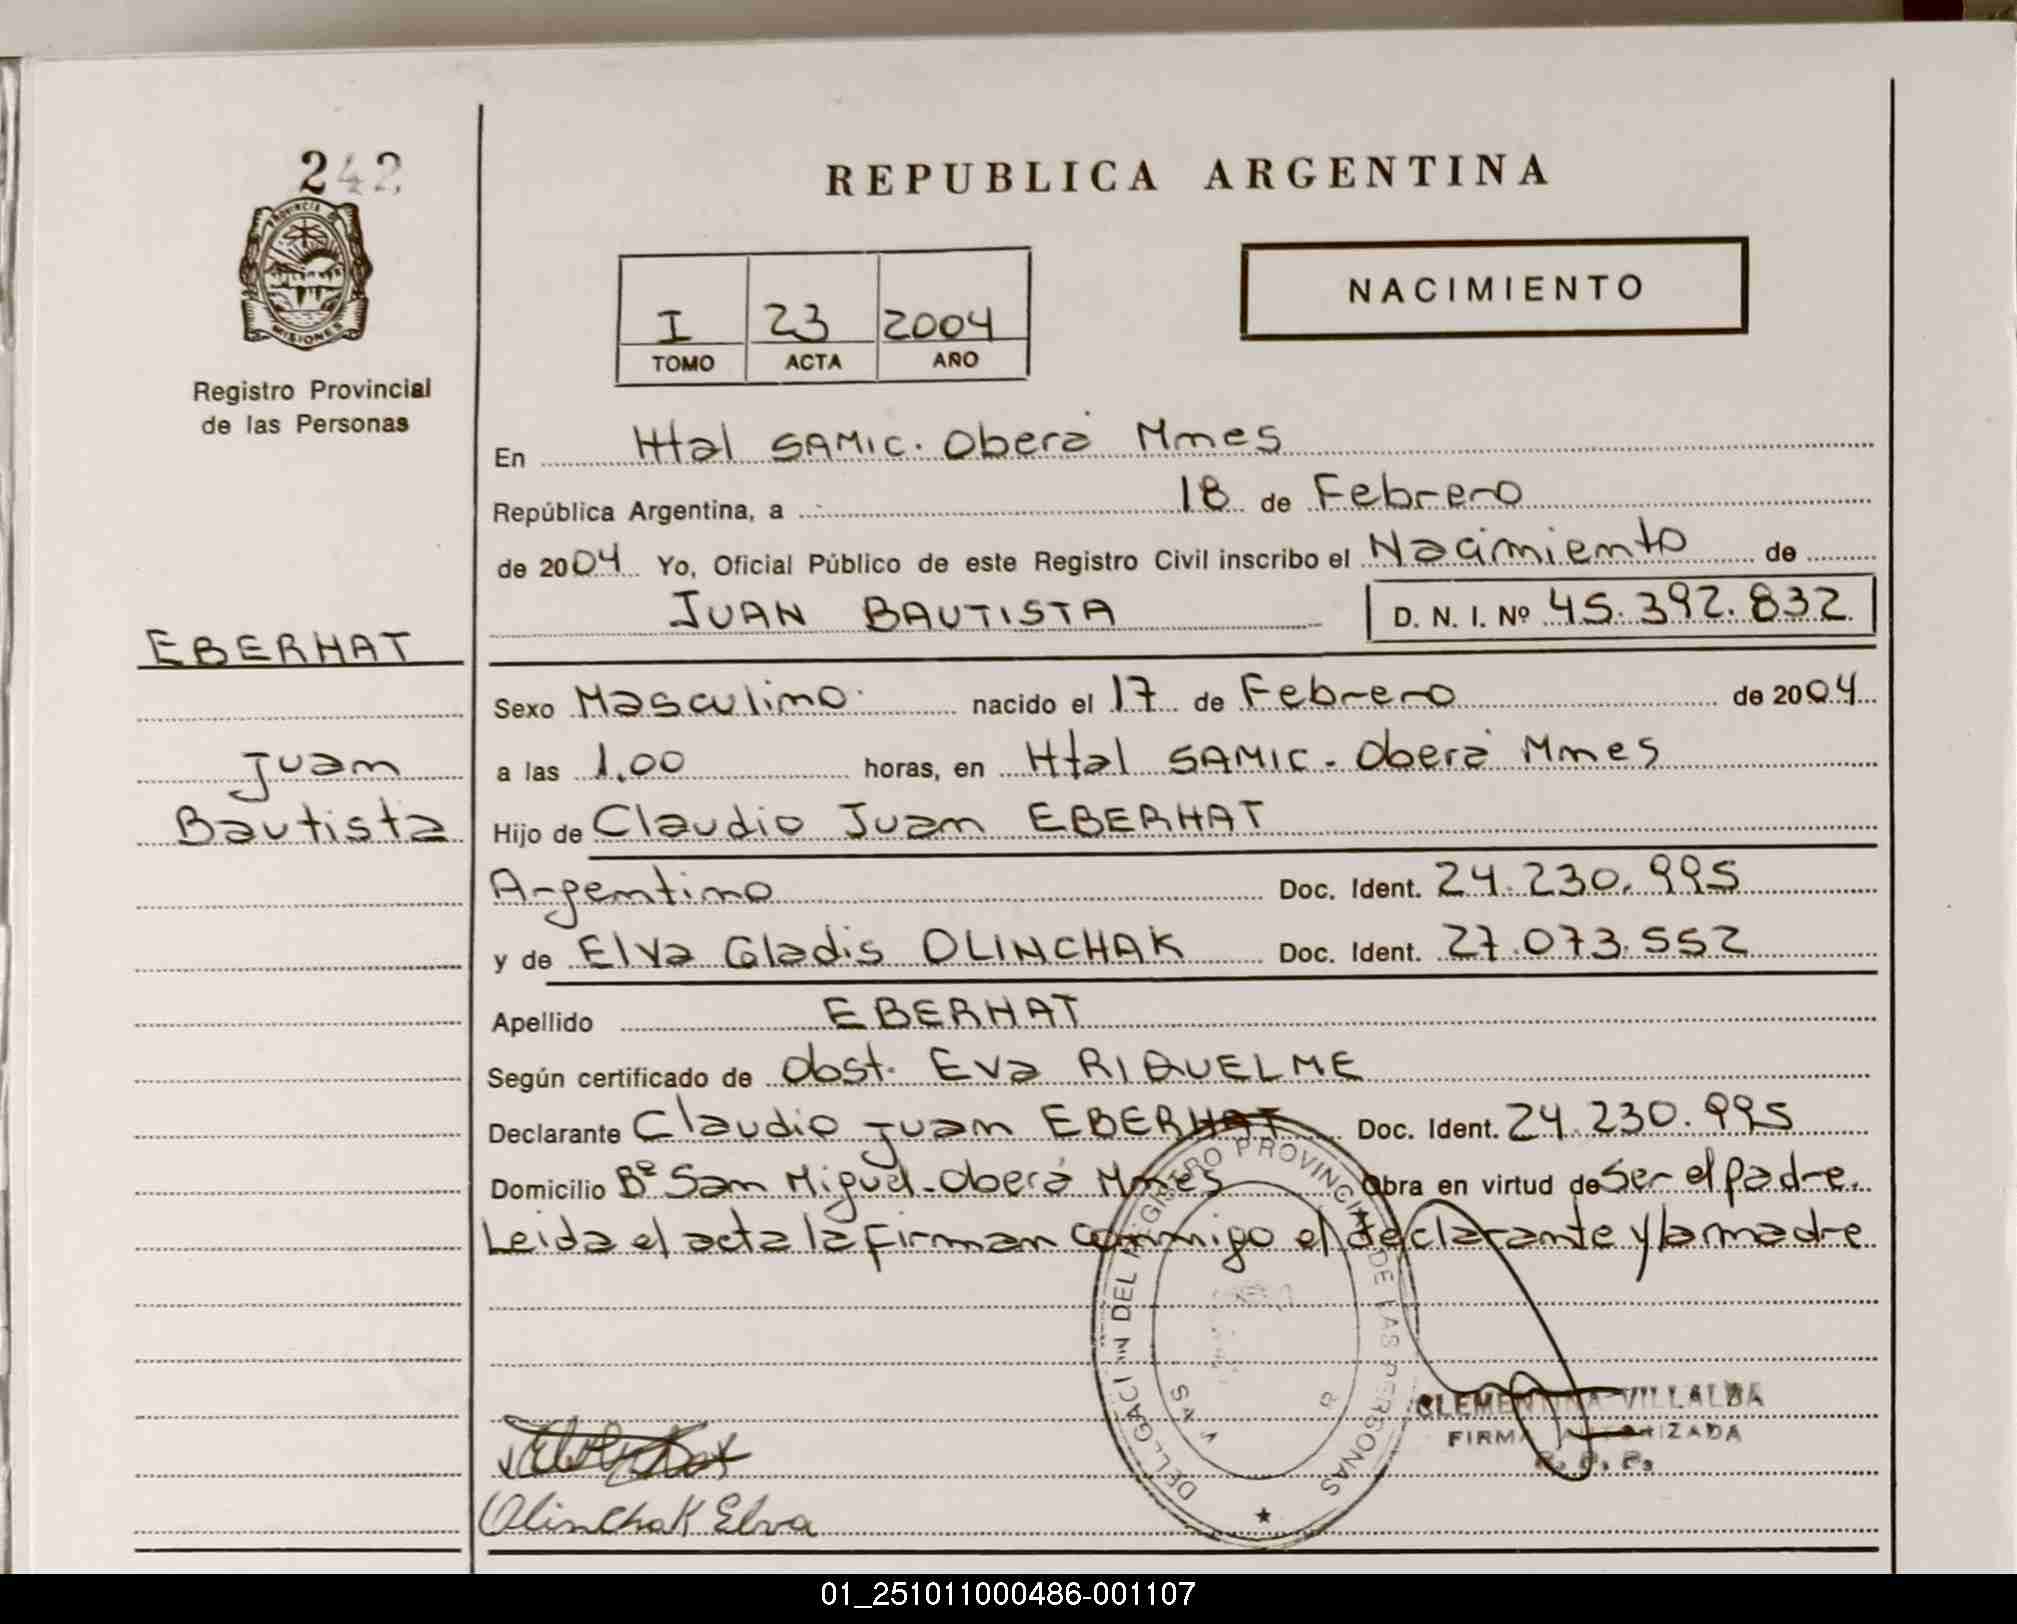 242
PROVINCIA DE
MISIONES
Registro Provincial
de las Personas
EBERHAT
Juan
Bautista
REPUBLICA ARGENTINA
I 23 2004
TOMO ACTA AÑO
NACIMIENTO
En Htal SAMIC. Oberá Mnes
República Argentina, a 18 de Febrero
de 2004 Yo, Oficial Público de este Registro Civil inscribo el Nacimiento de
JUAN BAUTISTA D. N. I. Nº 45.392.832
Sexo Masculino nacido el 17 de Febrero de 2004
a las 1.00 horas, en Htal SAMIC - Oberá Mnes
Hijo de Claudio Juan EBERHAT
Argentino Doc. Ident. 24.230.995
y de Elva Gladis OLINCHAK Doc. Ident. 27.073.552
Apellido EBERHAT
Según certificado de Obst. Eva RIQUELME
Declarante Claudio Juan EBERHAT Doc. Ident. 24.230.995
Domicilio Bº San Miguel - Oberá Mnes Obra en virtud de ser el padre.
Leida el acta la firman conmigo el declarante y la madre
DELEGACION DEL REGISTRO PROVINCIAL DE LAS PERSONAS
CLEMENTINA VILLALBA
FIRMA AUTORIZADA
R. P. P.
Olinchak Elva
01_251011000486-001107